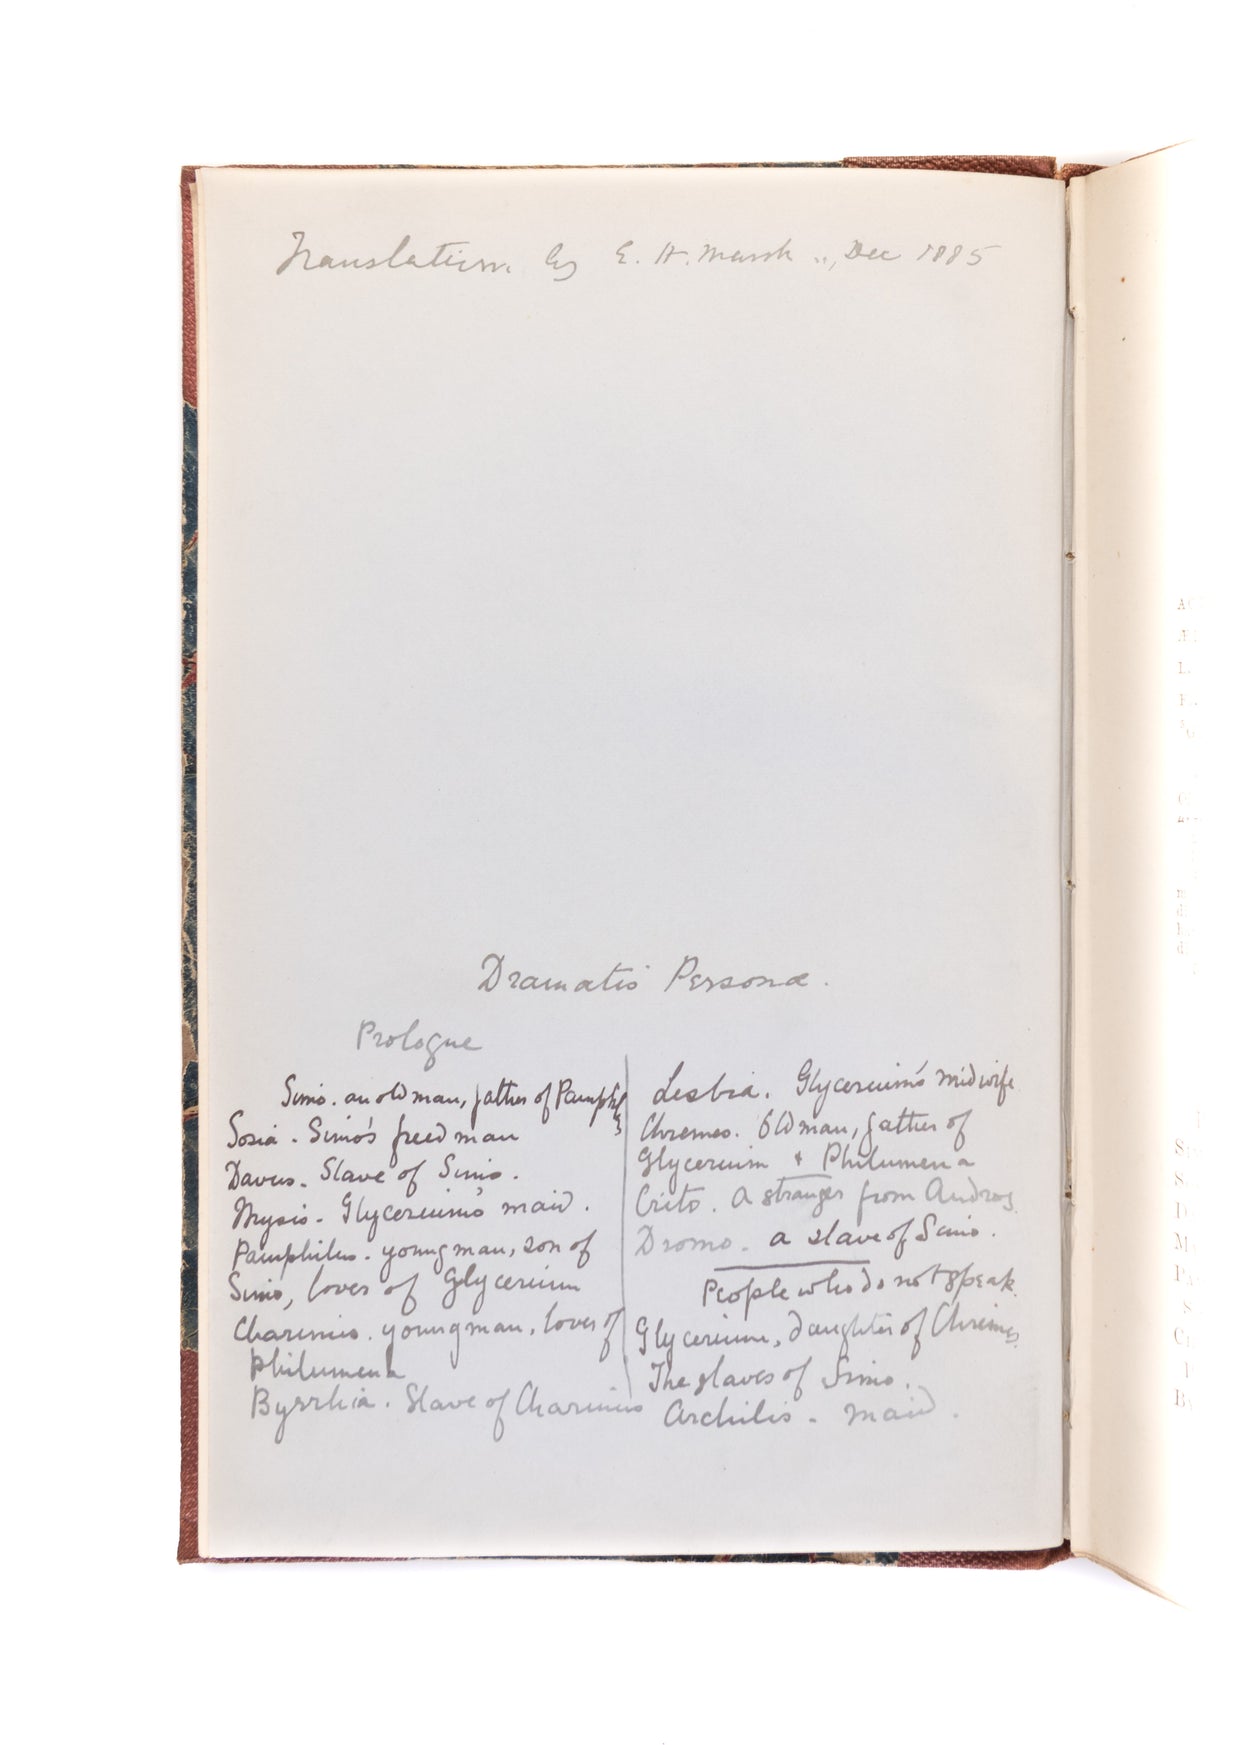 Translation by E. H. Marsh Dec 1885
Dramatis Personæ.
Prologue
Simo. an old man, father of
Sosia. Simo's freedman
Davus. Slave of Simo.
Mysis. Glycerium's maid.
Pamphilus. young man, son of
Simo, lover of Glycerium
Charinus. young man, lover of
Philumena
Byrrhia. Slave of Charinus
Lesbia. Glycerium's midwife.
Chremes. Old man, father of
Glycerium + Philumena
Crito. A stranger from Andros.
Dromo. a slave of Simo.
People who do not speak.
Glycerium, daughter of Chremes.
The slaves of Simo.
Archilis - maid.